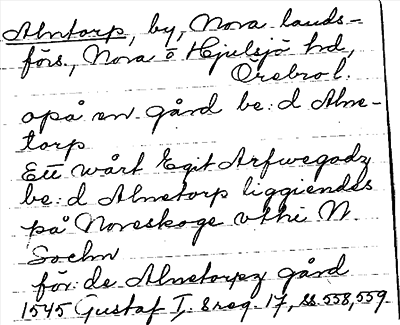 Alntorp, by, Nora lands-
förs., Nora o Hjulsjö hd,
Örebro l.
opå en gård be:d Alne-
torp
Ett wårt Egit Arfwegodz
be:d Alnetorp liggiendes
på Noreskoge vthi N.
Sochn
för:de Alnetorpz gård
1545 Gustaf I:s reg. 17, ss 558, 559.